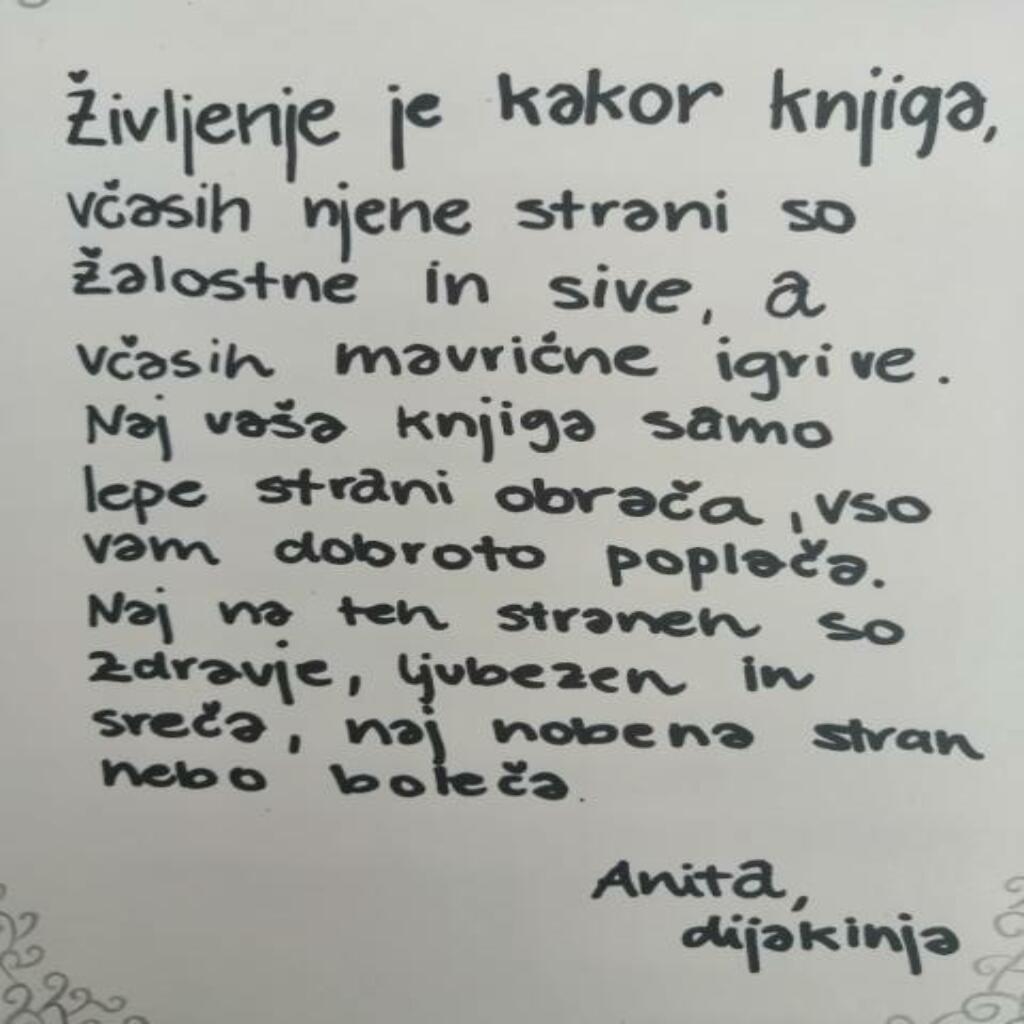 Življenje je kakor knjiga,
včasih njene strani so
žalostne in sive, a
včasih mavrične igrive.
Naj vaša knjiga samo
lepe strani obrača, vso
vam dobroto poplača.
Naj na teh straneh so
zdravje, ljubezen in
sreča, naj nobena stran
nebo boleča.
Anita,
dijakinja